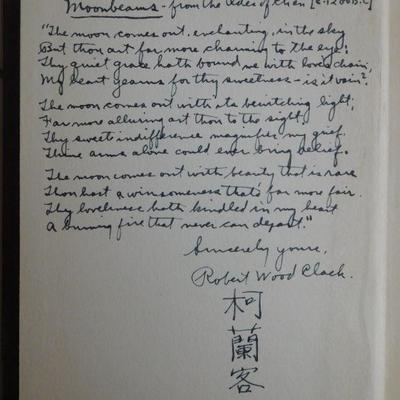 Moonbeams - from the Odes of Chen [c. 1200 B.C.]
"The moon comes out, enchanting, in the sky
But thou art far more charming to the eye;
Thy quiet grace hath bound me with love's chain,
My heart yearns for thy sweetness - is it vain?
The moon comes out with its bewitching light;
Far more alluring art thou to the sight,
Thy sweet indifference magnifies my grief.
Thine arms alone could ever bring relief.
The moon comes out with beauty that is rare
Thou hast a winsomeness that's far more fair.
Thy loveliness hath kindled in my heart
A burning fire that never can depart."
Sincerely yours,
Robert Wood Clack.
柯
蘭
客